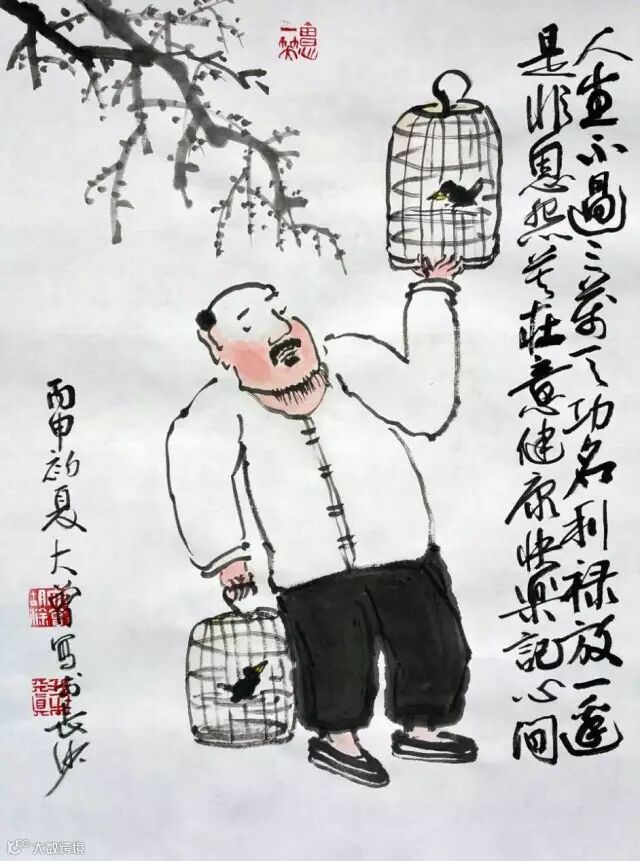 人生不過三萬天功名利禄放一邊
是非恩怨莫在意健康快樂記心间
丙申初夏大曾写於長沙
大数跨境